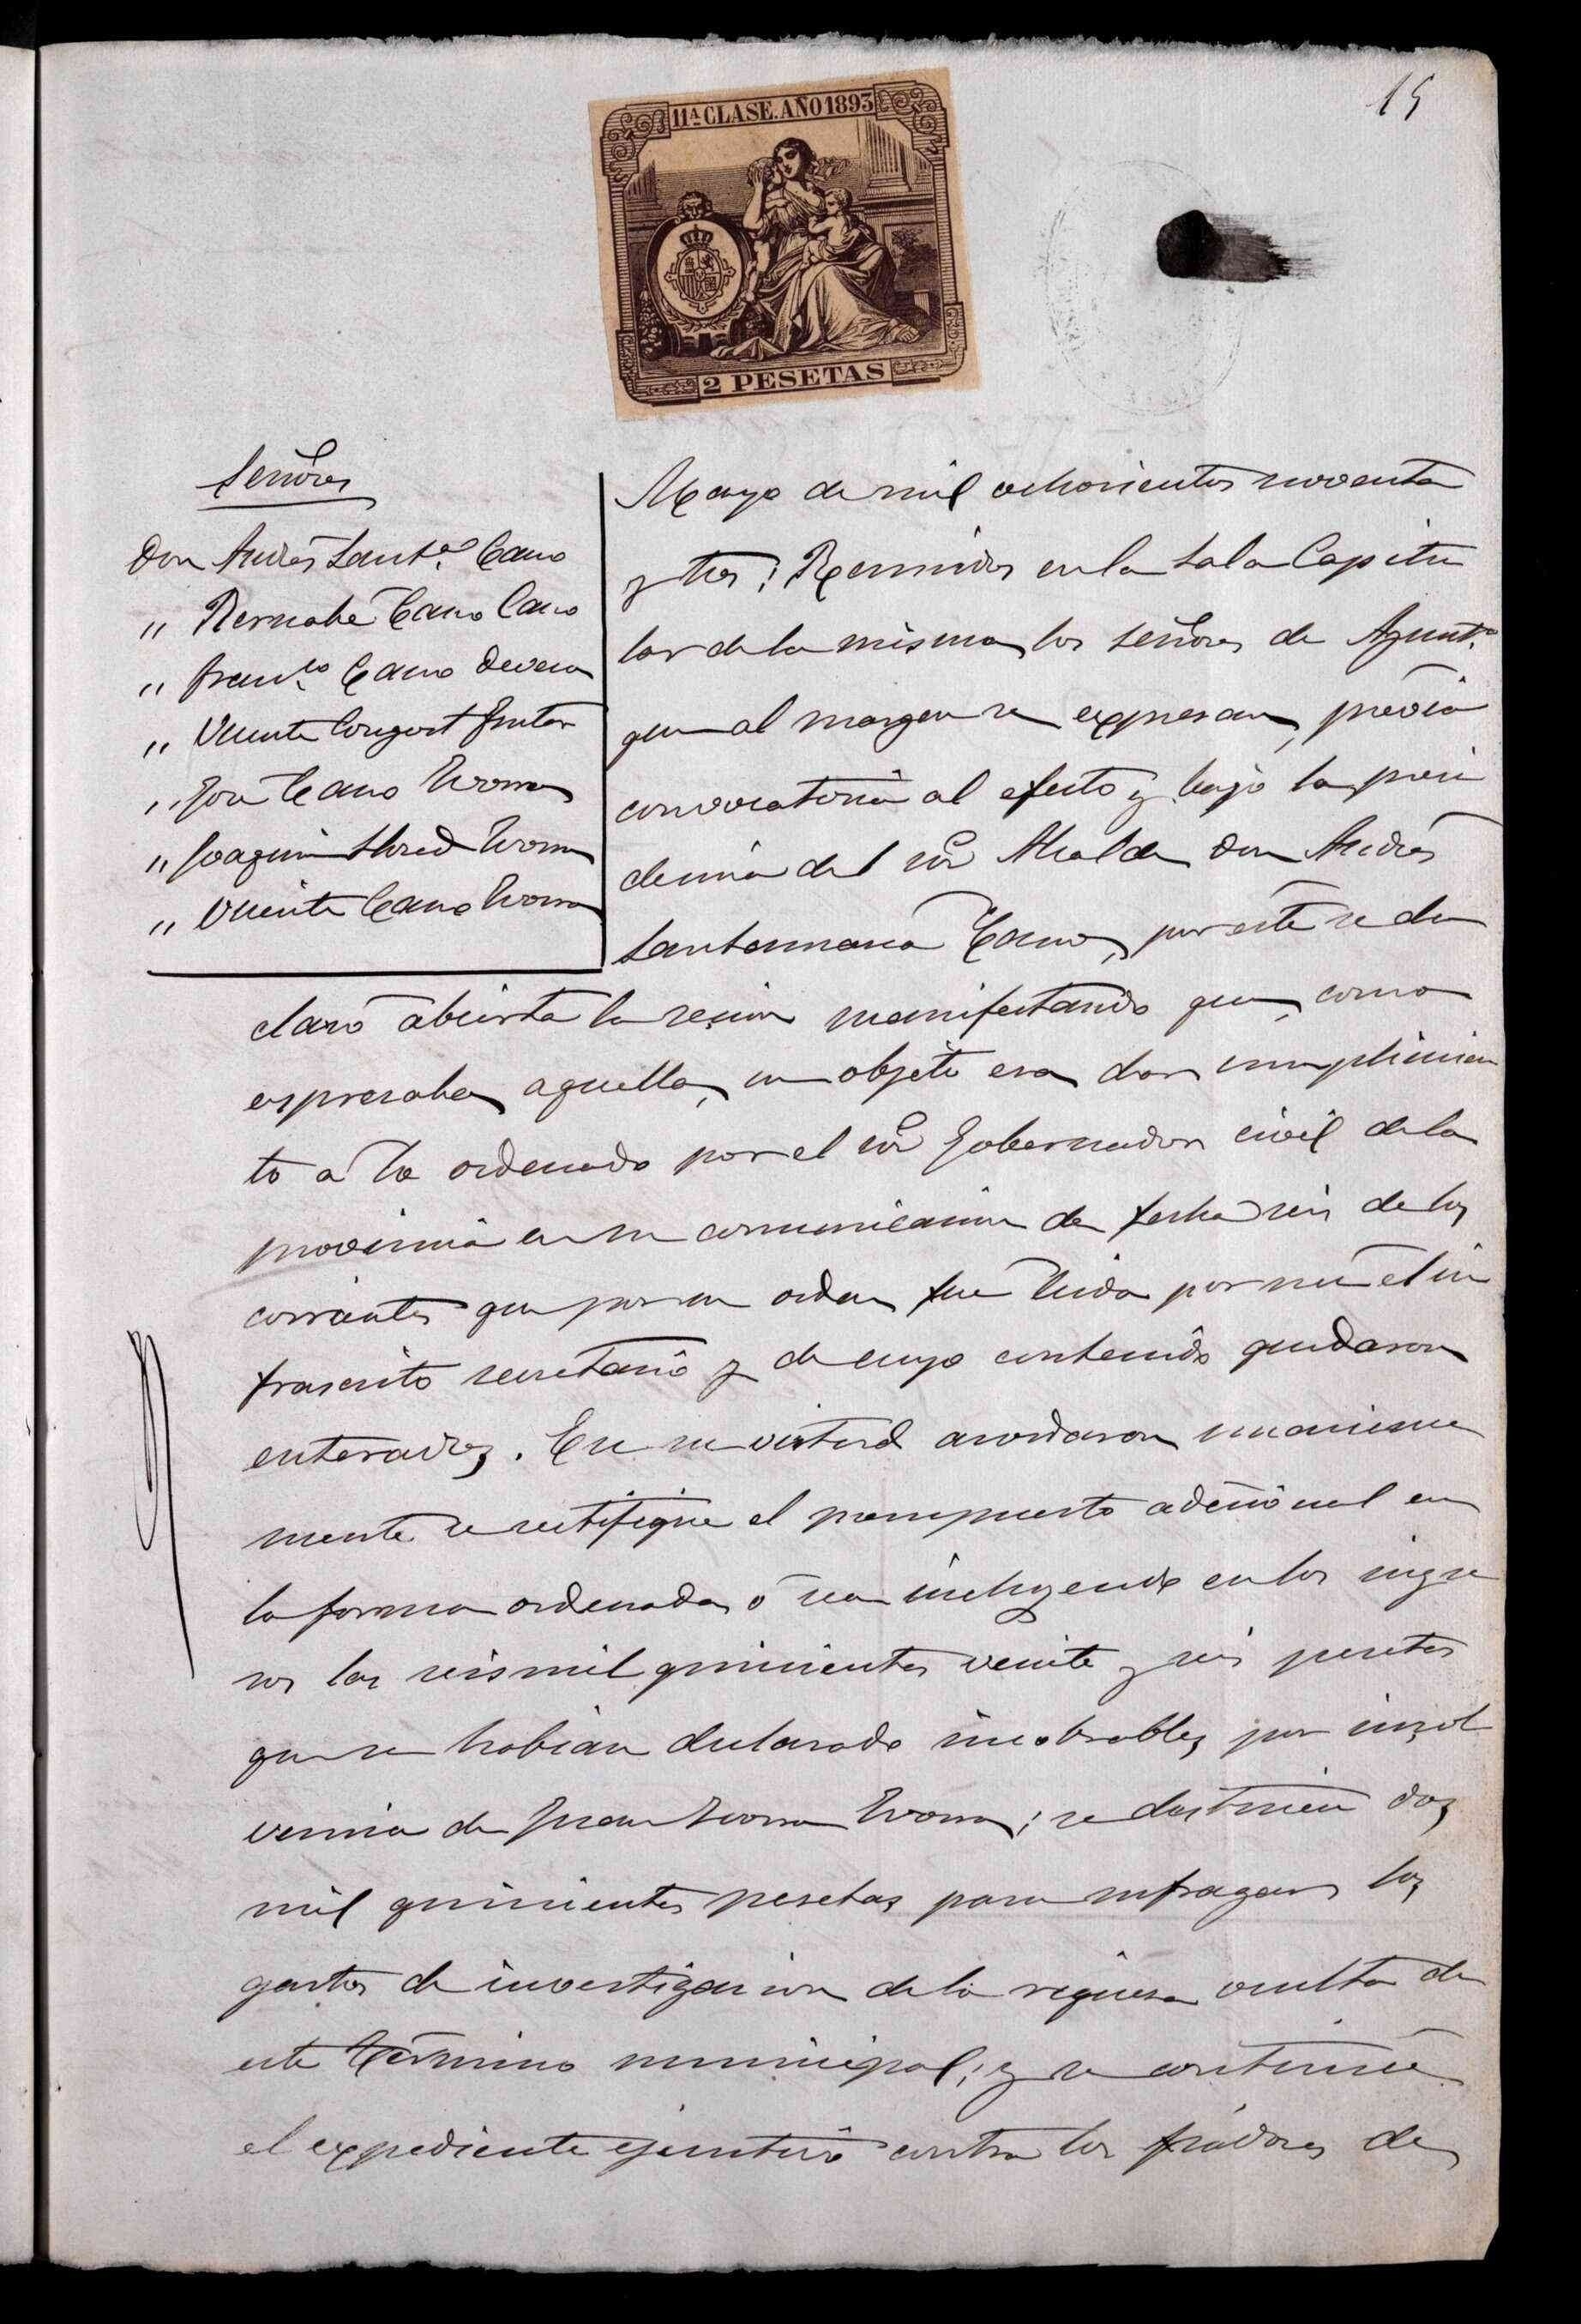 15
11ª CLASE. AÑO 1893
2 PESETAS
Señores
Don Andrés Santª Cano
" Bernabé Cano Cano
" Franco Cano Devesa
" Vicente Congost
" José Cano Thoma
" Joaquin Lloret Thoma
" Vicente Cano Thoma
Mayo de mil ochocientos noventa
y tres; Reunidos en la Sala Capitu
lar de la misma los señores de Ayunto
que al margen se expresan, prévia
convocatoria al efecto y bajo la presi
dencia del Sor Alcalde Don Andrés
Santamaria Cano, por este se de
claró abierta la sesion manifestando que, como
expresaba aquella, su objeto era dar cumplimien
to a lo ordenado por el Sor Gobernador civil de la
provincia en su comunicacion de fecha seis de los
corrientes que por su orden fue leida por mi el in
frascrito secretario y de cuyo contenido quedaron
enterados. En su virtud acordaron unanime
mente se rectifique el presupuesto adicional en
la forma ordenada ó sea incluyendo en los ingre
sos las seis mil quinientas veinte y seis pesetas
que se habian declarado incobrables por insol
vencia de Juan; se destinen dos
mil quinientas pesetas para sufragar los
gastos de investigacion de la riqueza oculta de
este término municipal; y se continúe
el expediente ejecutivo contra los fiadores de